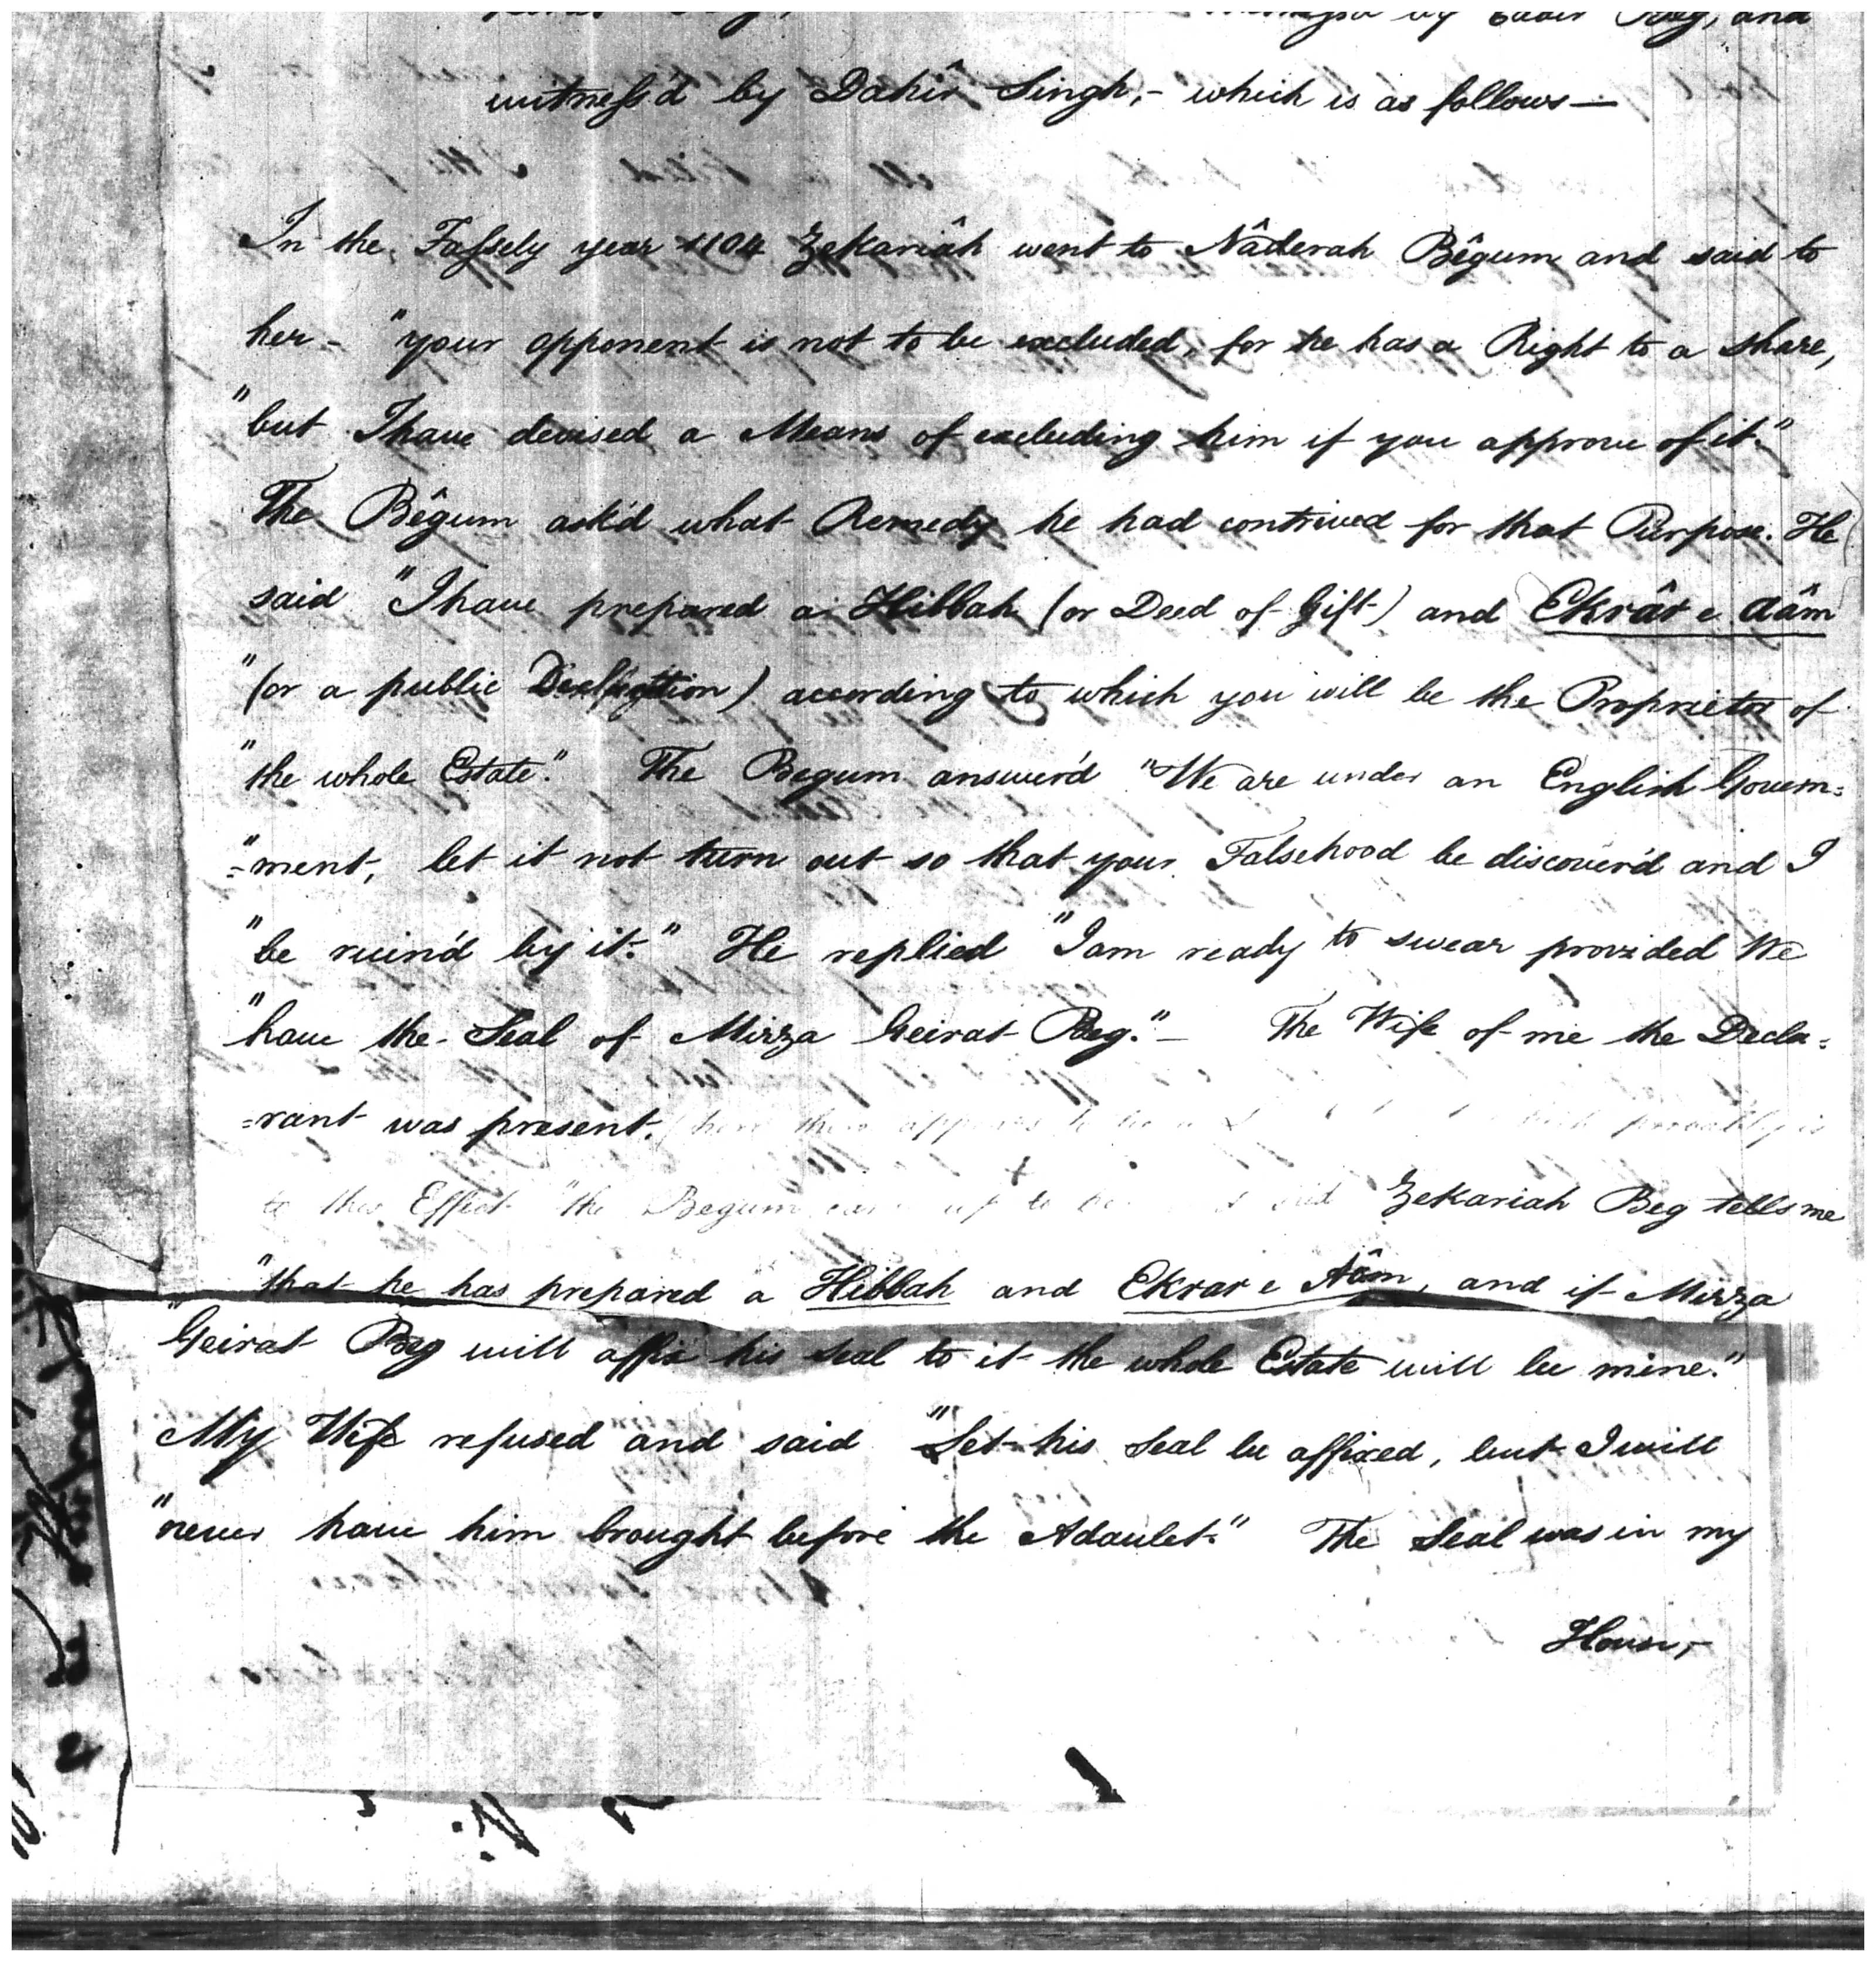 by and
witness'd by Dahir Singh,- which is as follows—
In the Fassely year 1104 Zekariâh went to Nâderah Bêgum and said to
her - "your opponent is not to be excluded, for he has a Right to a share,
"but I have devised a Means of excluding him if you approve of it."
The Bêgum ask'd what Remedy he had contrived for that Purpose. He
said "I have prepared a Hibbah (or Deed of Gift) and Ekrâr e Aâm
"(or a public ) according to which you will be the Proprietor of
"the whole Estate." The Begum answer'd "We are under an English Govern=
"=ment, let it not turn out so that your Falsehood be discover'd and I
"be ruin'd by it." He replied "I am ready to swear provided We
"have the Seal of Mirza Geirat Beg."- The Wife of me the Decla=
=rant was present. (here there appears to probably is
to this Effect "the Begum came up to her said Zekariah Beg tells me
"that he has prepared a Hibbah and Ekrar e Aâm, and if Mirza
"Geirat Beg will affix his Seal to it the whole Estate will be mine."
My Wife refused and said "Let his Seal be affixed, but I will
"never have him brought before the Adaulet." The Seal was in my
House,-